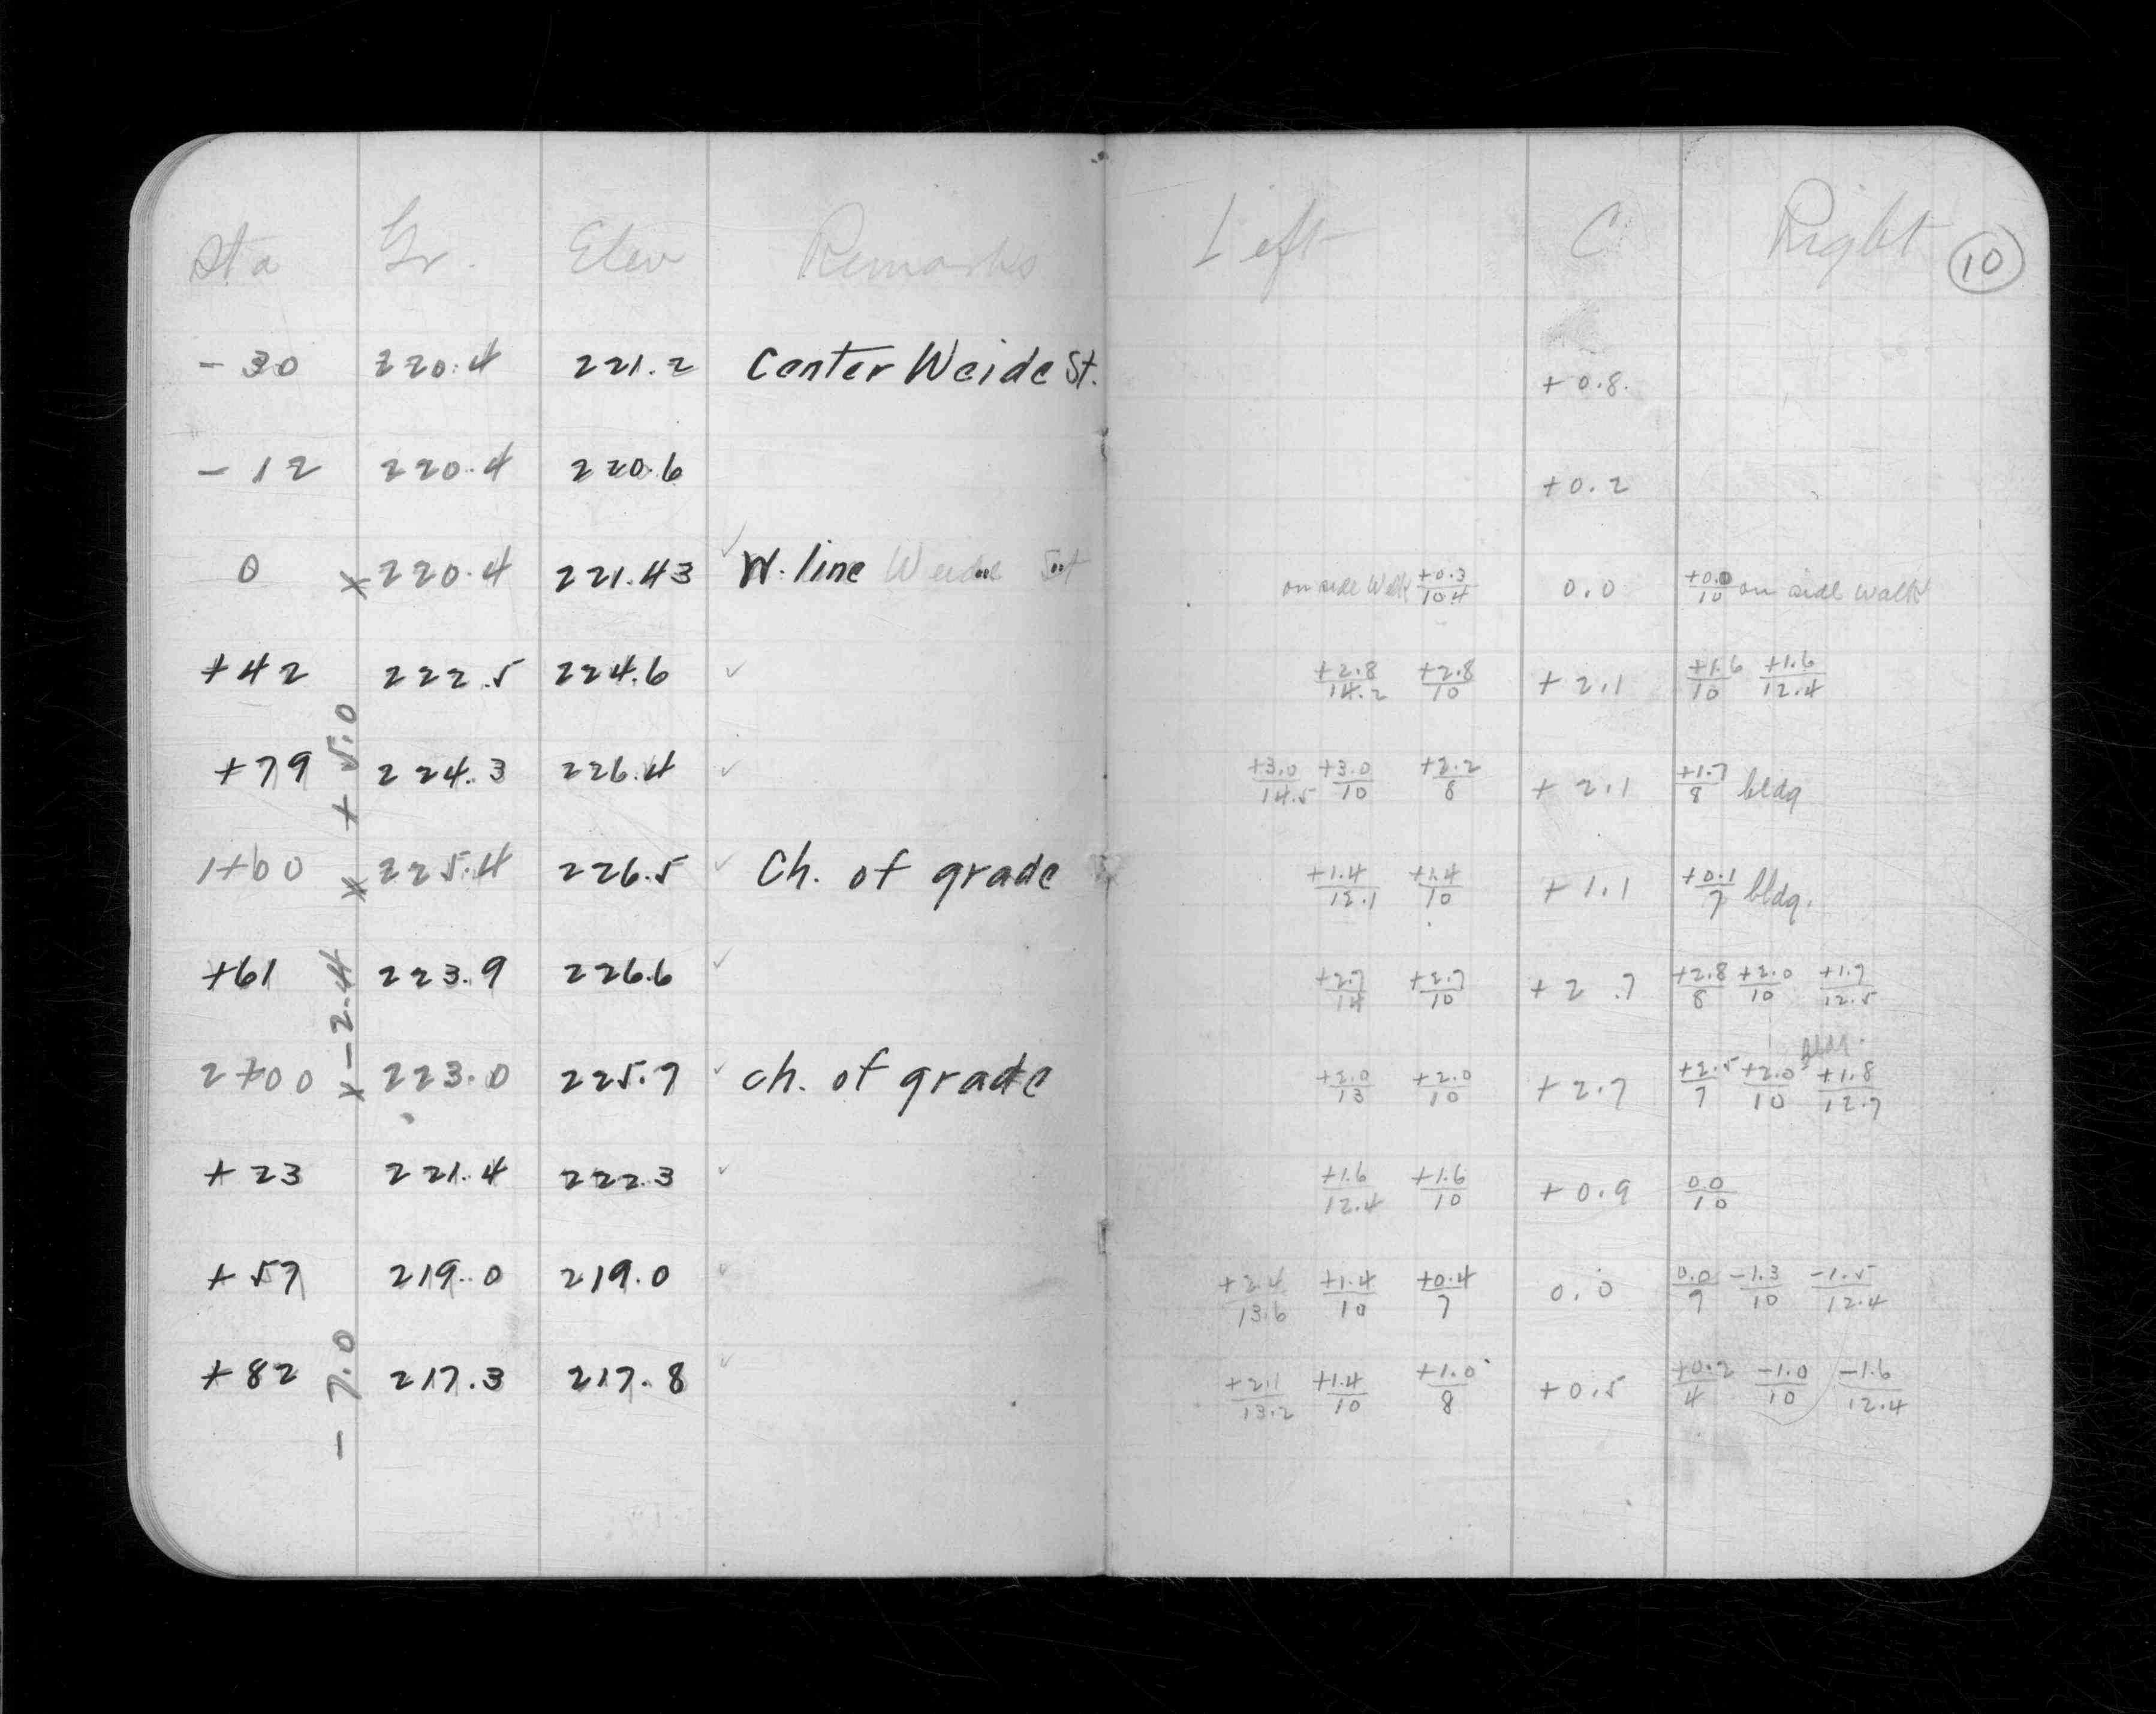 Sta Gr. Elev Remarks Left C Right 10
- 30 220.4 221.2 Center Weide St. + 0.8
- 12 220.4 220.6 + 0.2
0 x 220.4 221.43 ✓ W. line Weide St on side Walk +0.3/10.4 0.0 +0.0/10 on side walk
+42 222.5 224.6 ✓ +2.8/14.2 +2.8/10 + 2.1 +1.6/10 +1.6/12.4
+ 5.0
+79 224.3 226.4 ✓ +3.0/14.5 +3.0/10 +2.2/8 + 2.1 +1.7/8 bldg
1+00 x 225.4 226.5 ✓ Ch. of grade +1.4/12.1 +1.4/10 + 1.1 +0.1/7 bldg.
+61 223.9 226.6 ✓ +2.7/14 +2.7/10 + 2.7 +2.8/8 +2.0/10 +1.7/12.5
- 2.4
2+00 x 223.0 225.7 ✓ Ch. of grade +2.0/13 +2.0/10 + 2.7 +2.5/7 +2.0/10 bldg. +1.8/12.7
+ 23 221.4 222.3 ✓ +1.6/12.4 +1.6/10 + 0.9 0.0/10
+ 57 219.0 219.0 ✓ +2.4/13.6 +1.4/10 +0.4/7 0.0 0.0/9 -1.3/10 -1.5/12.4
+ 82 217.3 217.8 ✓ +2.1/13.2 +1.4/10 +1.0/8 +0.5 +0.2/4 -1.0/10 -1.6/12.4
- 7.0